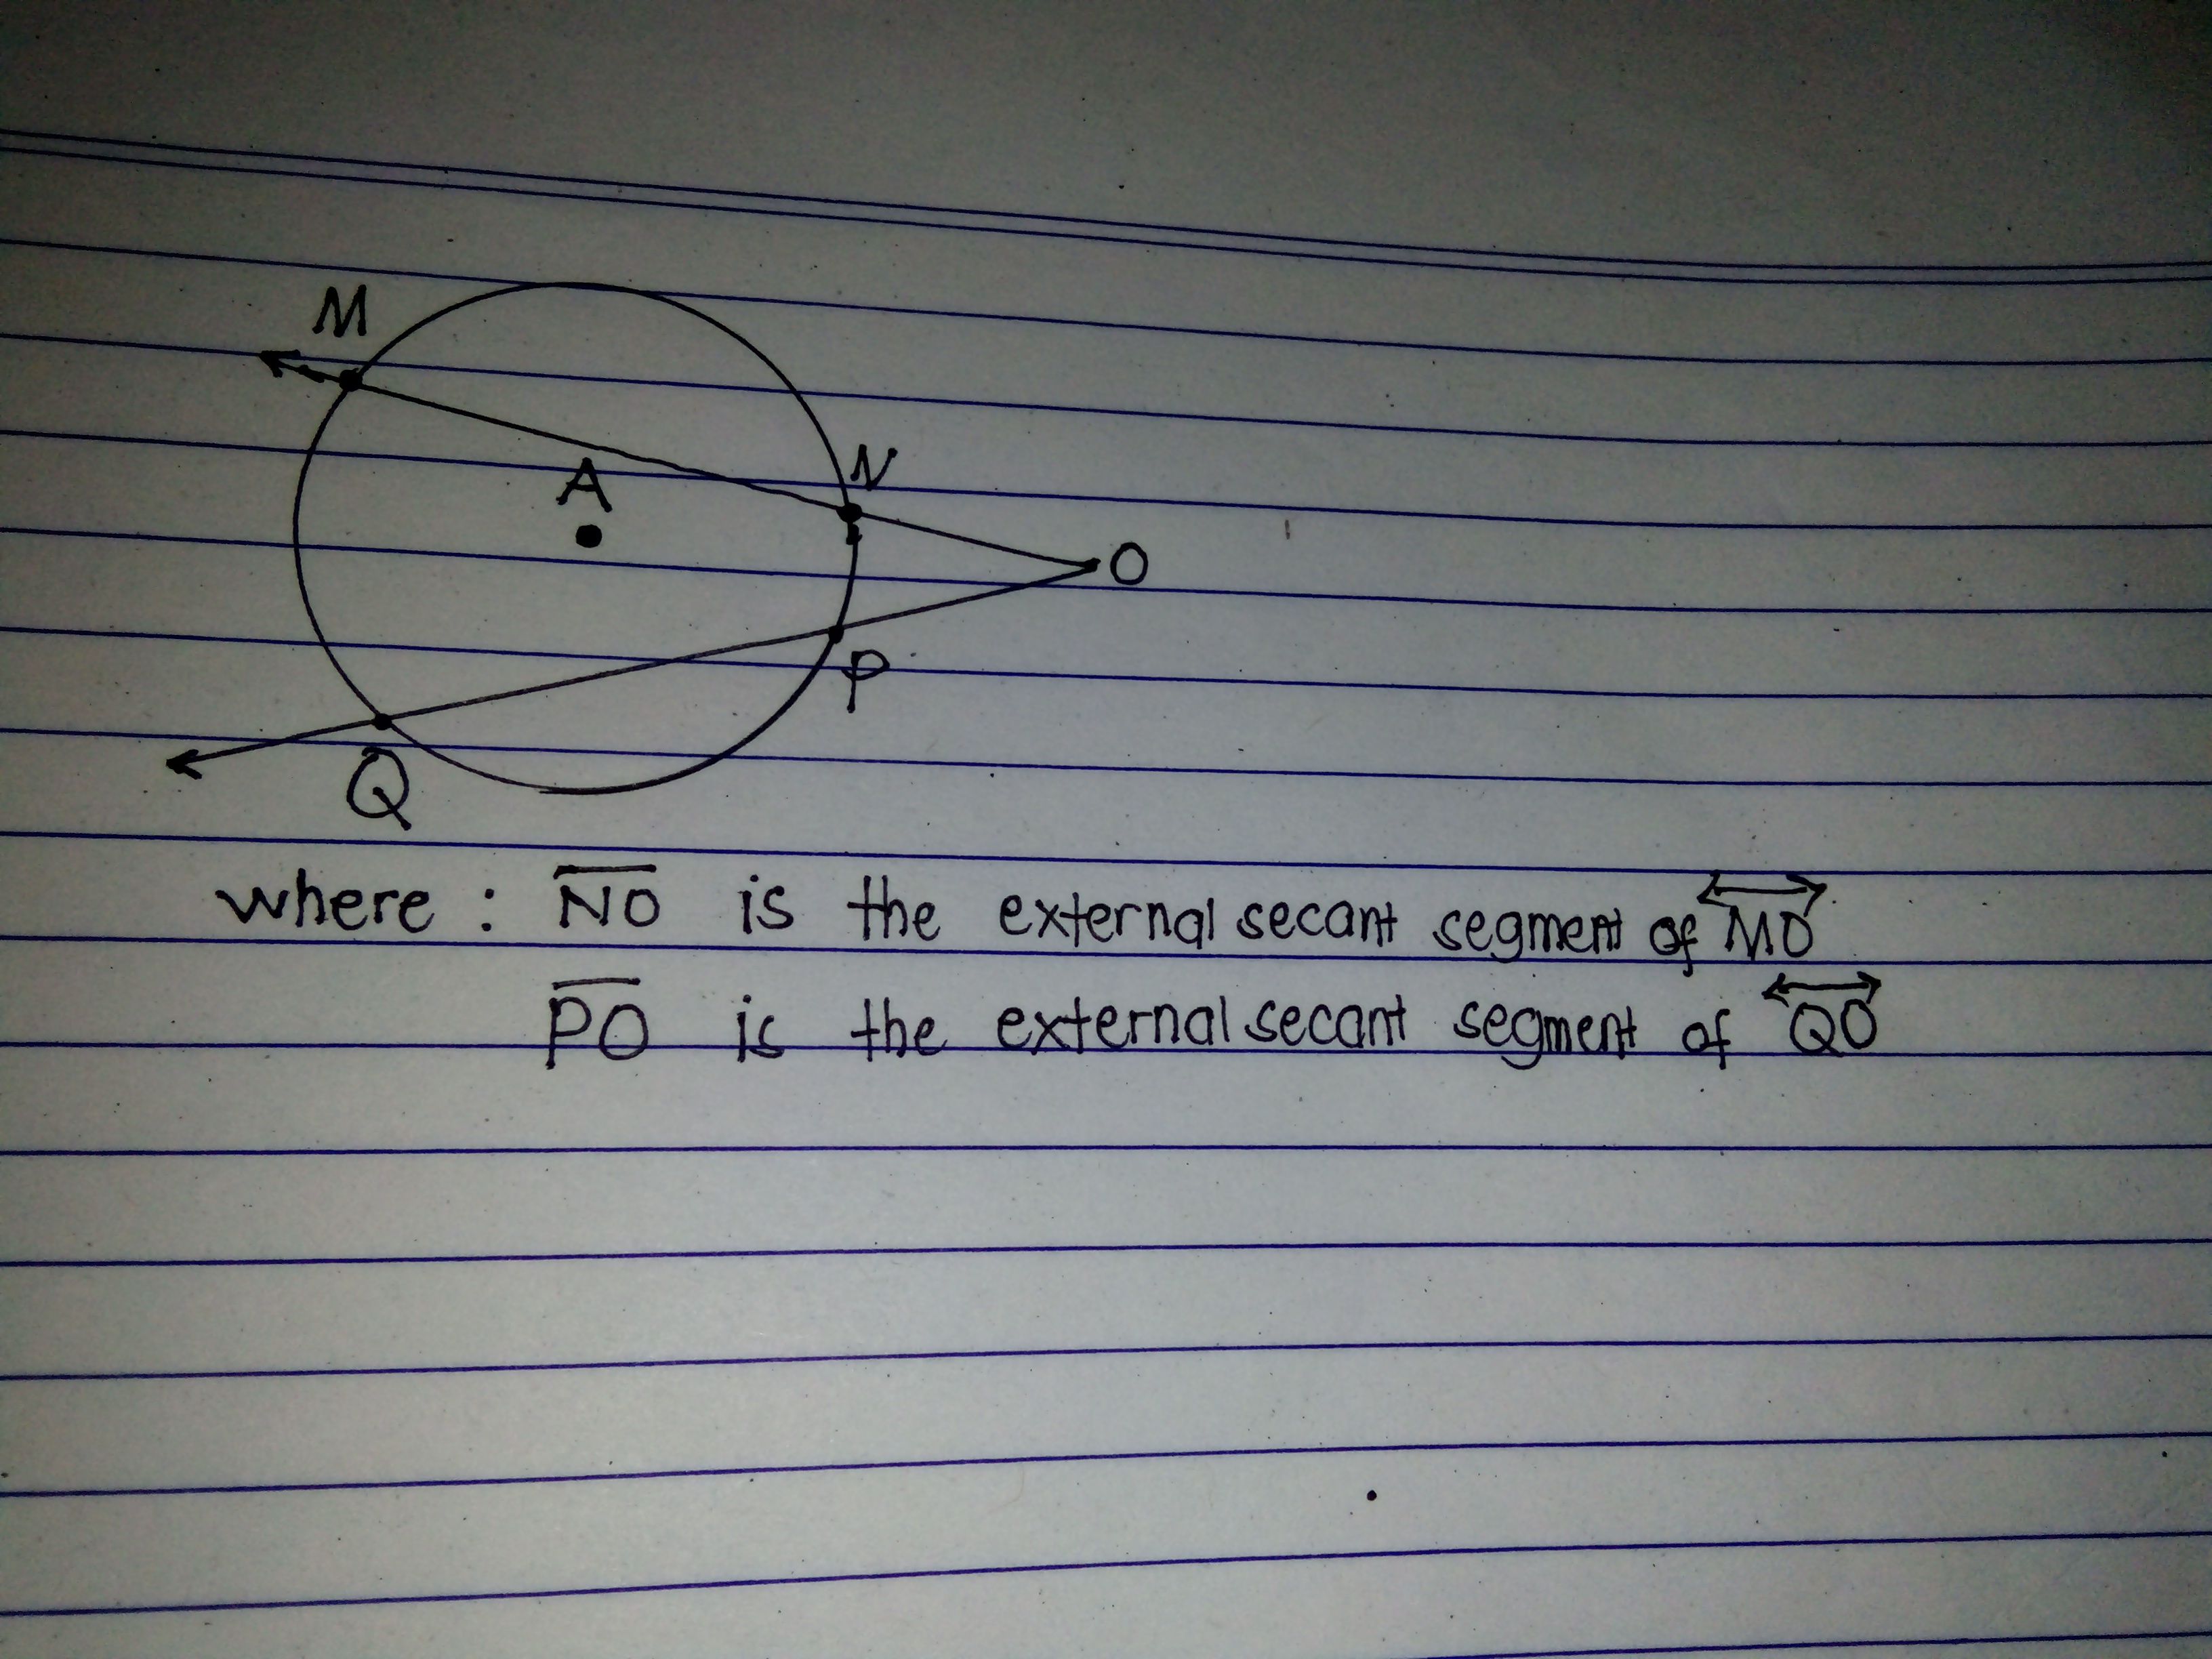 M
N
A
O
P
Q
where : NO is the external secant segment of MO
PO is the external secant segment of QO